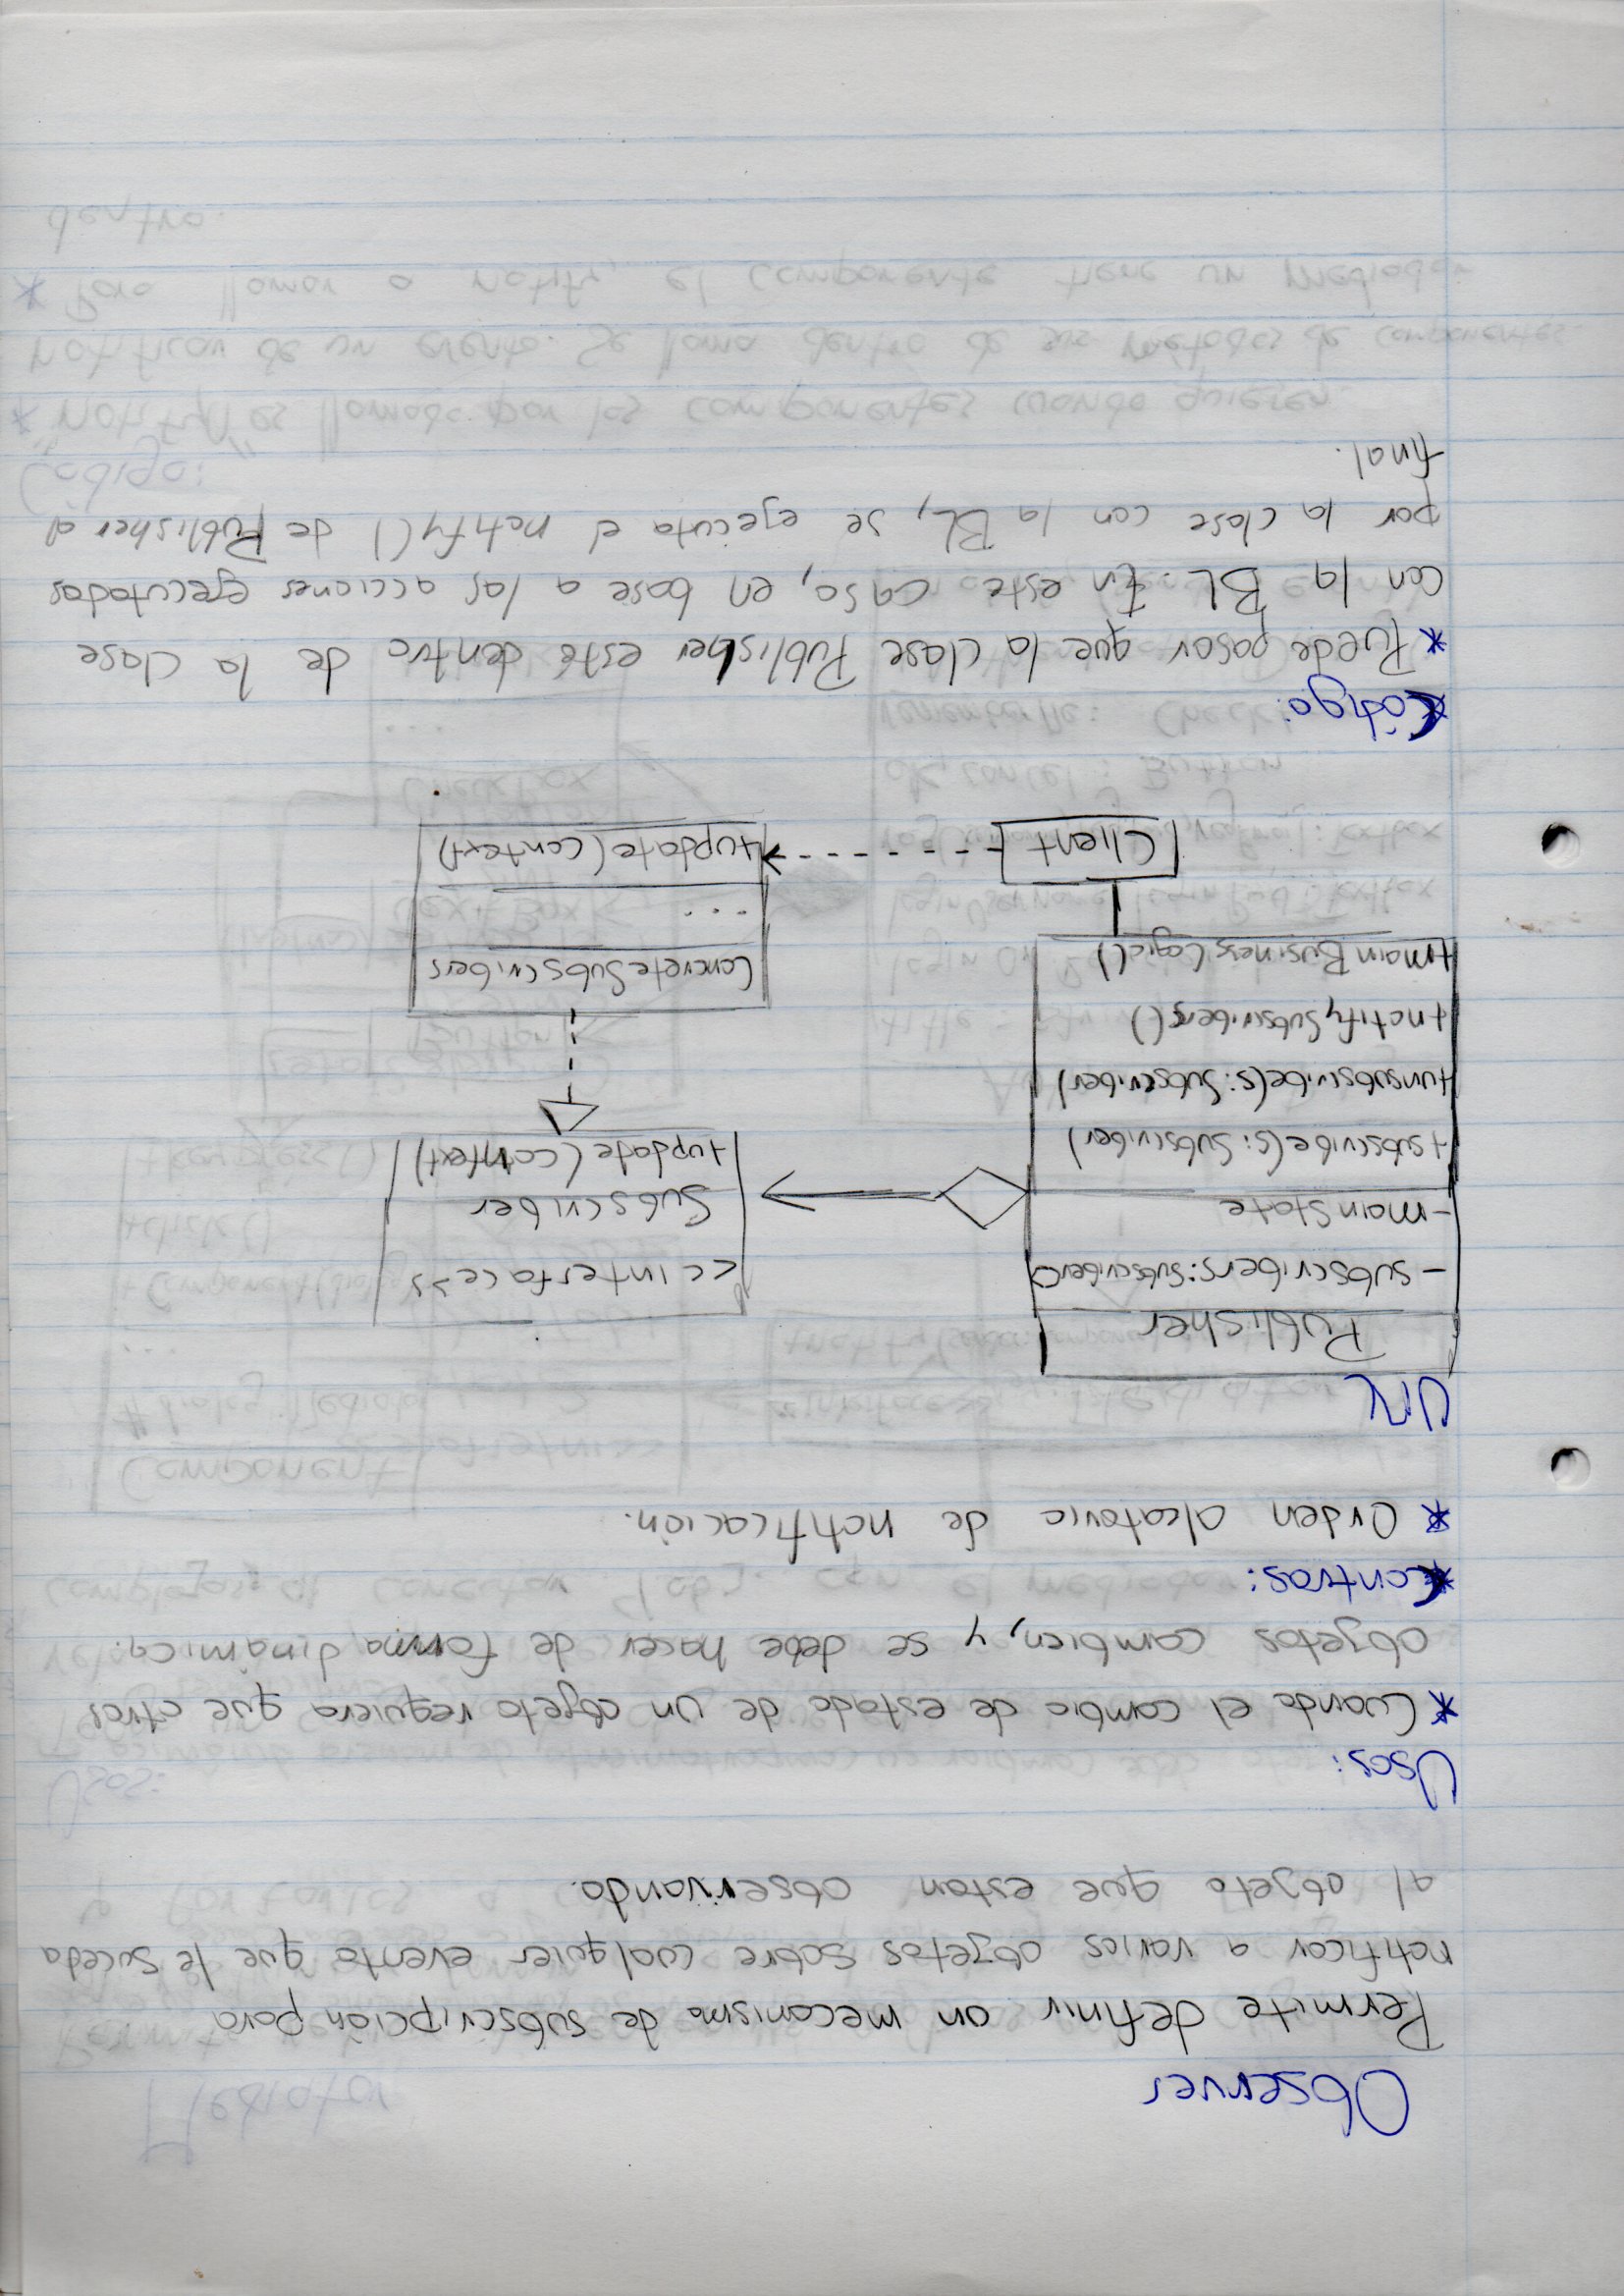 Observer
Permite definir un mecanismo de subscripción para
notificar a varios objetos sobre cualquier evento que le suceda
al objeto que estan observando.
Usos:
* Cuando el cambio de estado de un objeto requiera que otros
objetos cambien, y se debe hacer de forma dinámica.
*Contras:
* Orden aleatorio de notificación.
UML
Publisher
- subscribers: Subscriber[]
- mainState
+subscribe(s: Subscriber)
+unsubscribe(s: Subscriber)
+notifySubscribers()
+mainBusinessLogic()
<<interface>>
Subscriber
+update(context)
ConcreteSubscribers
...
+update(context)
Client
*Código:
* Puede pasar que la clase Publisher esté dentro de la clase
con la BL. En este caso, en base a las acciones ejecutadas
por la clase con la BL, se ejecuta el notify() de Publisher al
final.